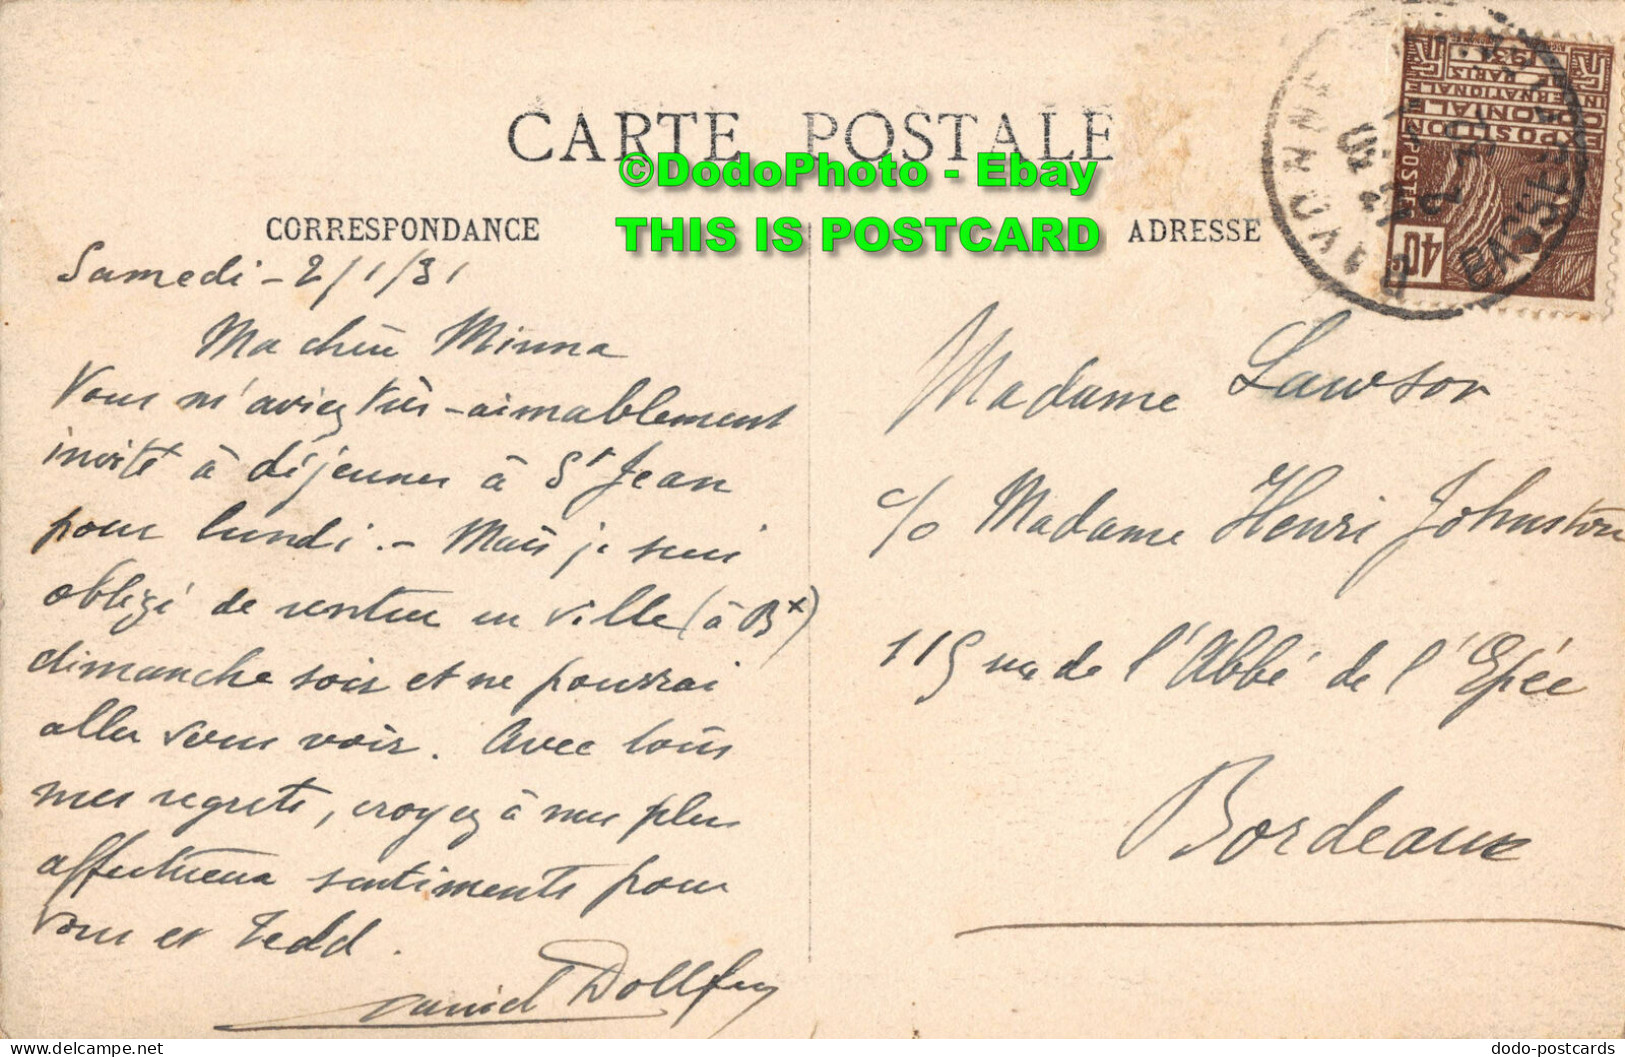 CARTE POSTALE
©DodoPhoto - Ebay
THIS IS POSTCARD
CORRESPONDANCE
Samedi - 2/1/31
Ma chère Minna
Vous m'aviez très-aimablement
invité à déjeuner à St Jean
pour lundi. - Mais je suis
obligé de rentrer en ville (à Bx)
dimanche soir et ne pourrai
aller vous voir. Avec tous
mes regrets, croyez à mes plus
affectueux sentiments pour
vous et Tedd.
Daniel Dollfus
ADRESSE
Madame Lawson
c/o Madame Henri Johnston
115 rue de l'Abbé de l'Epée
Bordeaux
EXPOSITION
COLONIALE
INTERNATIONALE
PARIS
1931
POSTES
40c
BAYONNE
BASSES
dodo-postcards